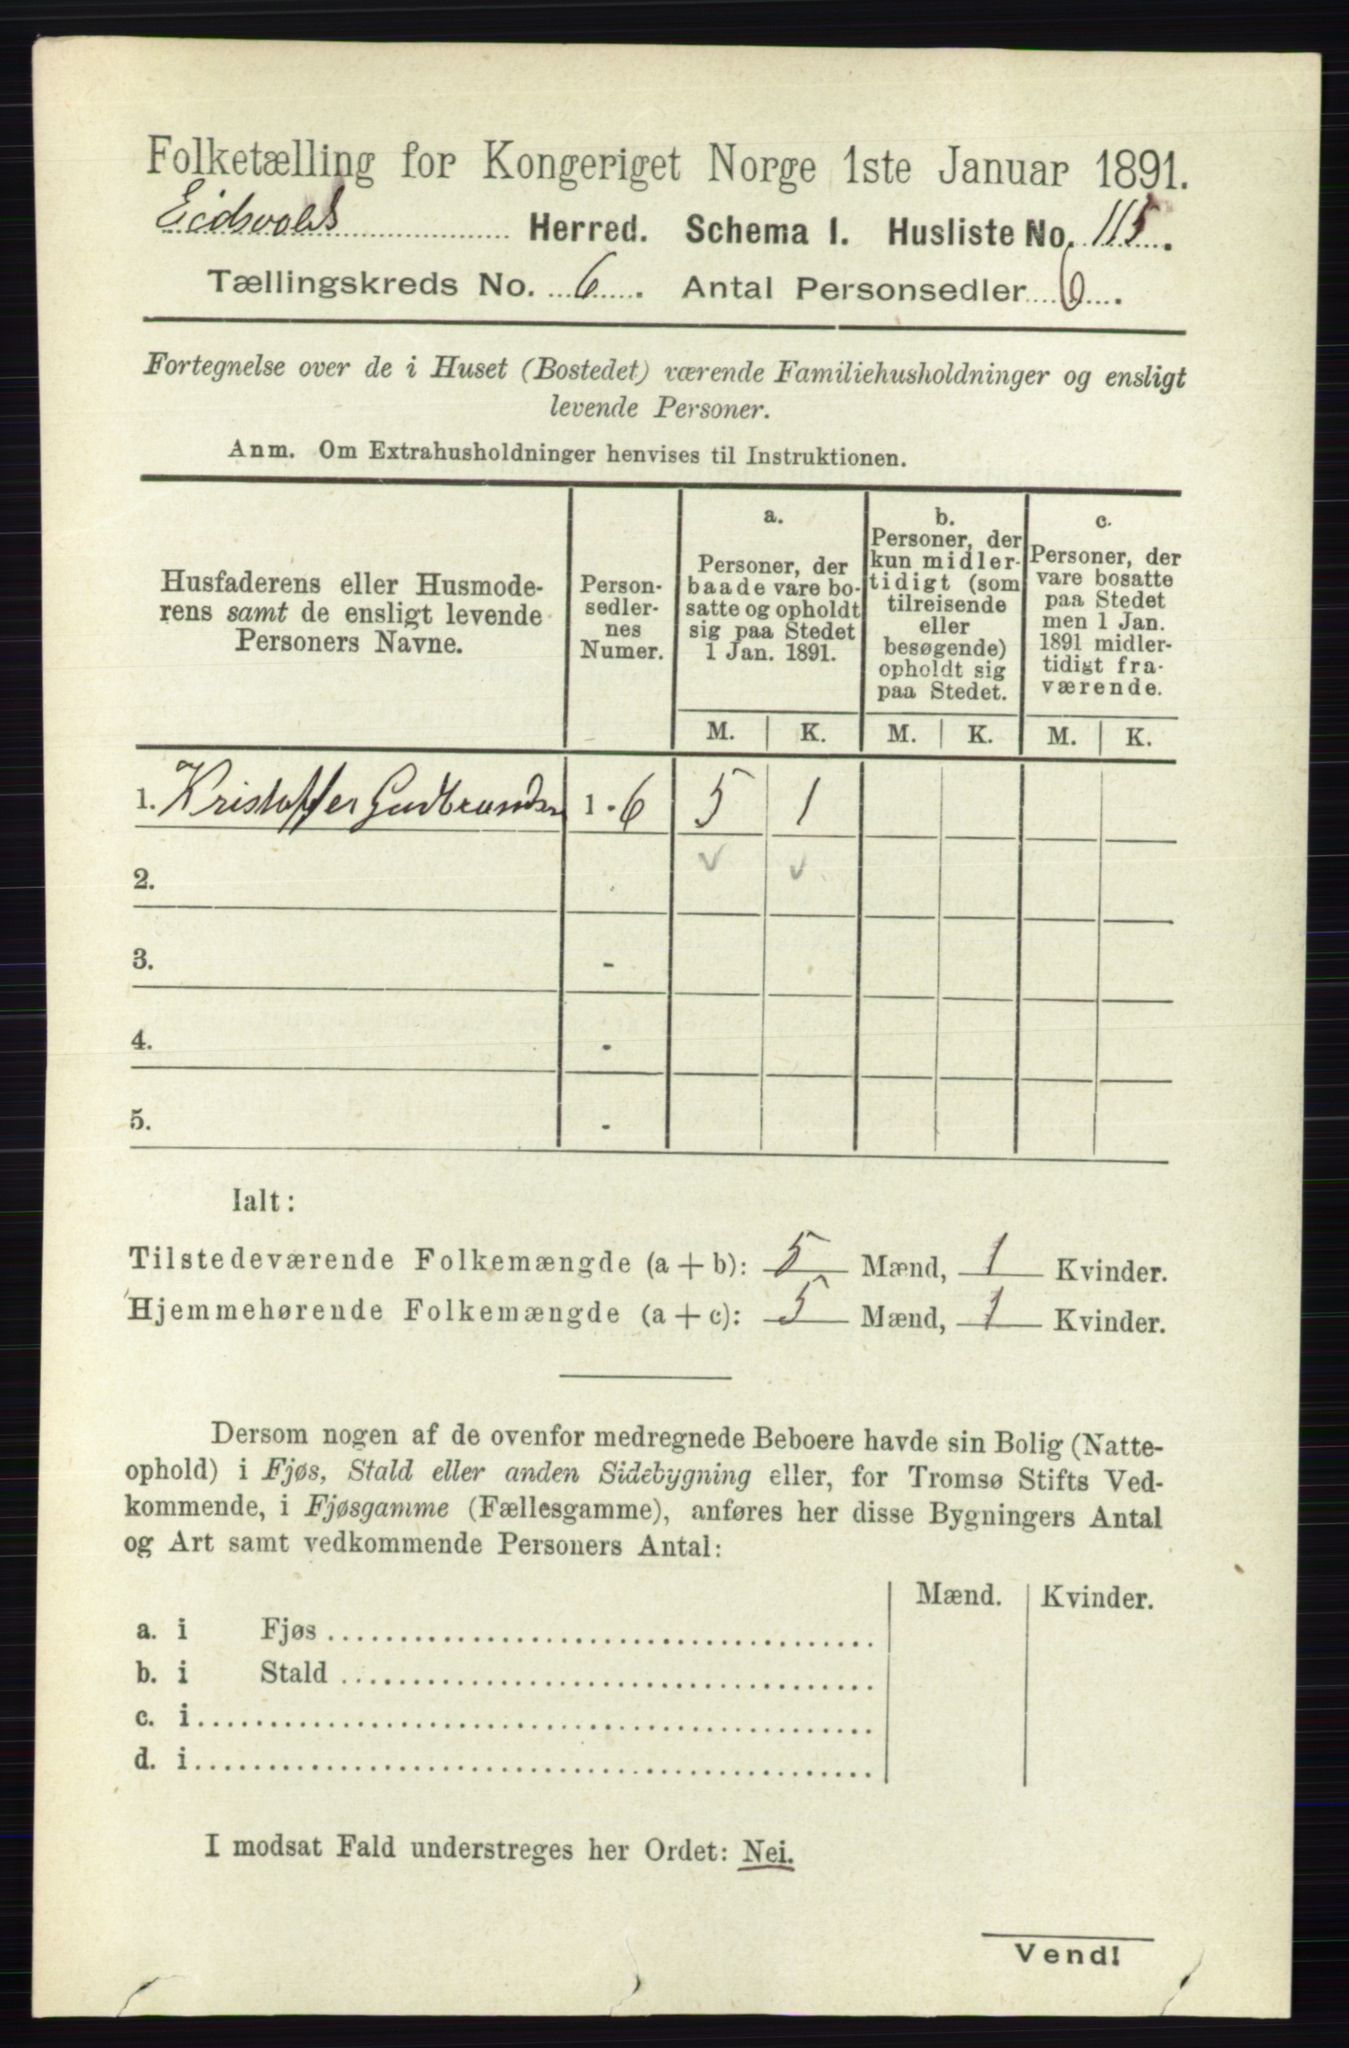 Folketælling for Kongeriget Norge 1ste Januar 1891.
Eidsvolds Herred. Schema I. Husliste No. 115.
Tællingskreds No. 6. Antal Personsedler 6.
Fortegnelse over de i Huset (Bostedet) værende Familiehusholdninger og ensligt
levende Personer.
Anm. Om Extrahusholdninger henvises til Instruktionen.
Husfaderens eller Husmode-
rens samt de ensligt levende
Personers Navne.
Person-
sedler-
nes
Numer.
a.
Personer, der
baade vare bo-
satte og opholdt
sig paa Stedet
1 Jan. 1891.
b.
Personer, der
kun midler-
tidigt (som
tilreisende
eller
besøgende)
opholdt sig
paa Stedet.
c.
Personer, der
vare bosatte
paa Stedet
men 1 Jan.
1891 midler-
tidigt fra-
værende.
M. K. M. K. M. K.
1. Kristoffer Gudbrandsen 1 - 6 5 1
2. -
3. -
4. -
5. -
Ialt:
Tilstedeværende Folkemængde (a + b): 5 Mænd, 1 Kvinder.
Hjemmehørende Folkemængde (a + c): 5 Mænd, 1 Kvinder.
Dersom nogen af de ovenfor medregnede Beboere havde sin Bolig (Natte-
ophold) i Fjøs, Stald eller anden Sidebygning eller, for Tromsø Stifts Ved-
kommende, i Fjøsgamme (Fællesgamme), anføres her disse Bygningers Antal
og Art samt vedkommende Personers Antal:
Mænd. Kvinder.
a. i Fjøs
b. i Stald
c. i
d. i
I modsat Fald understreges her Ordet: Nei.
Vend!